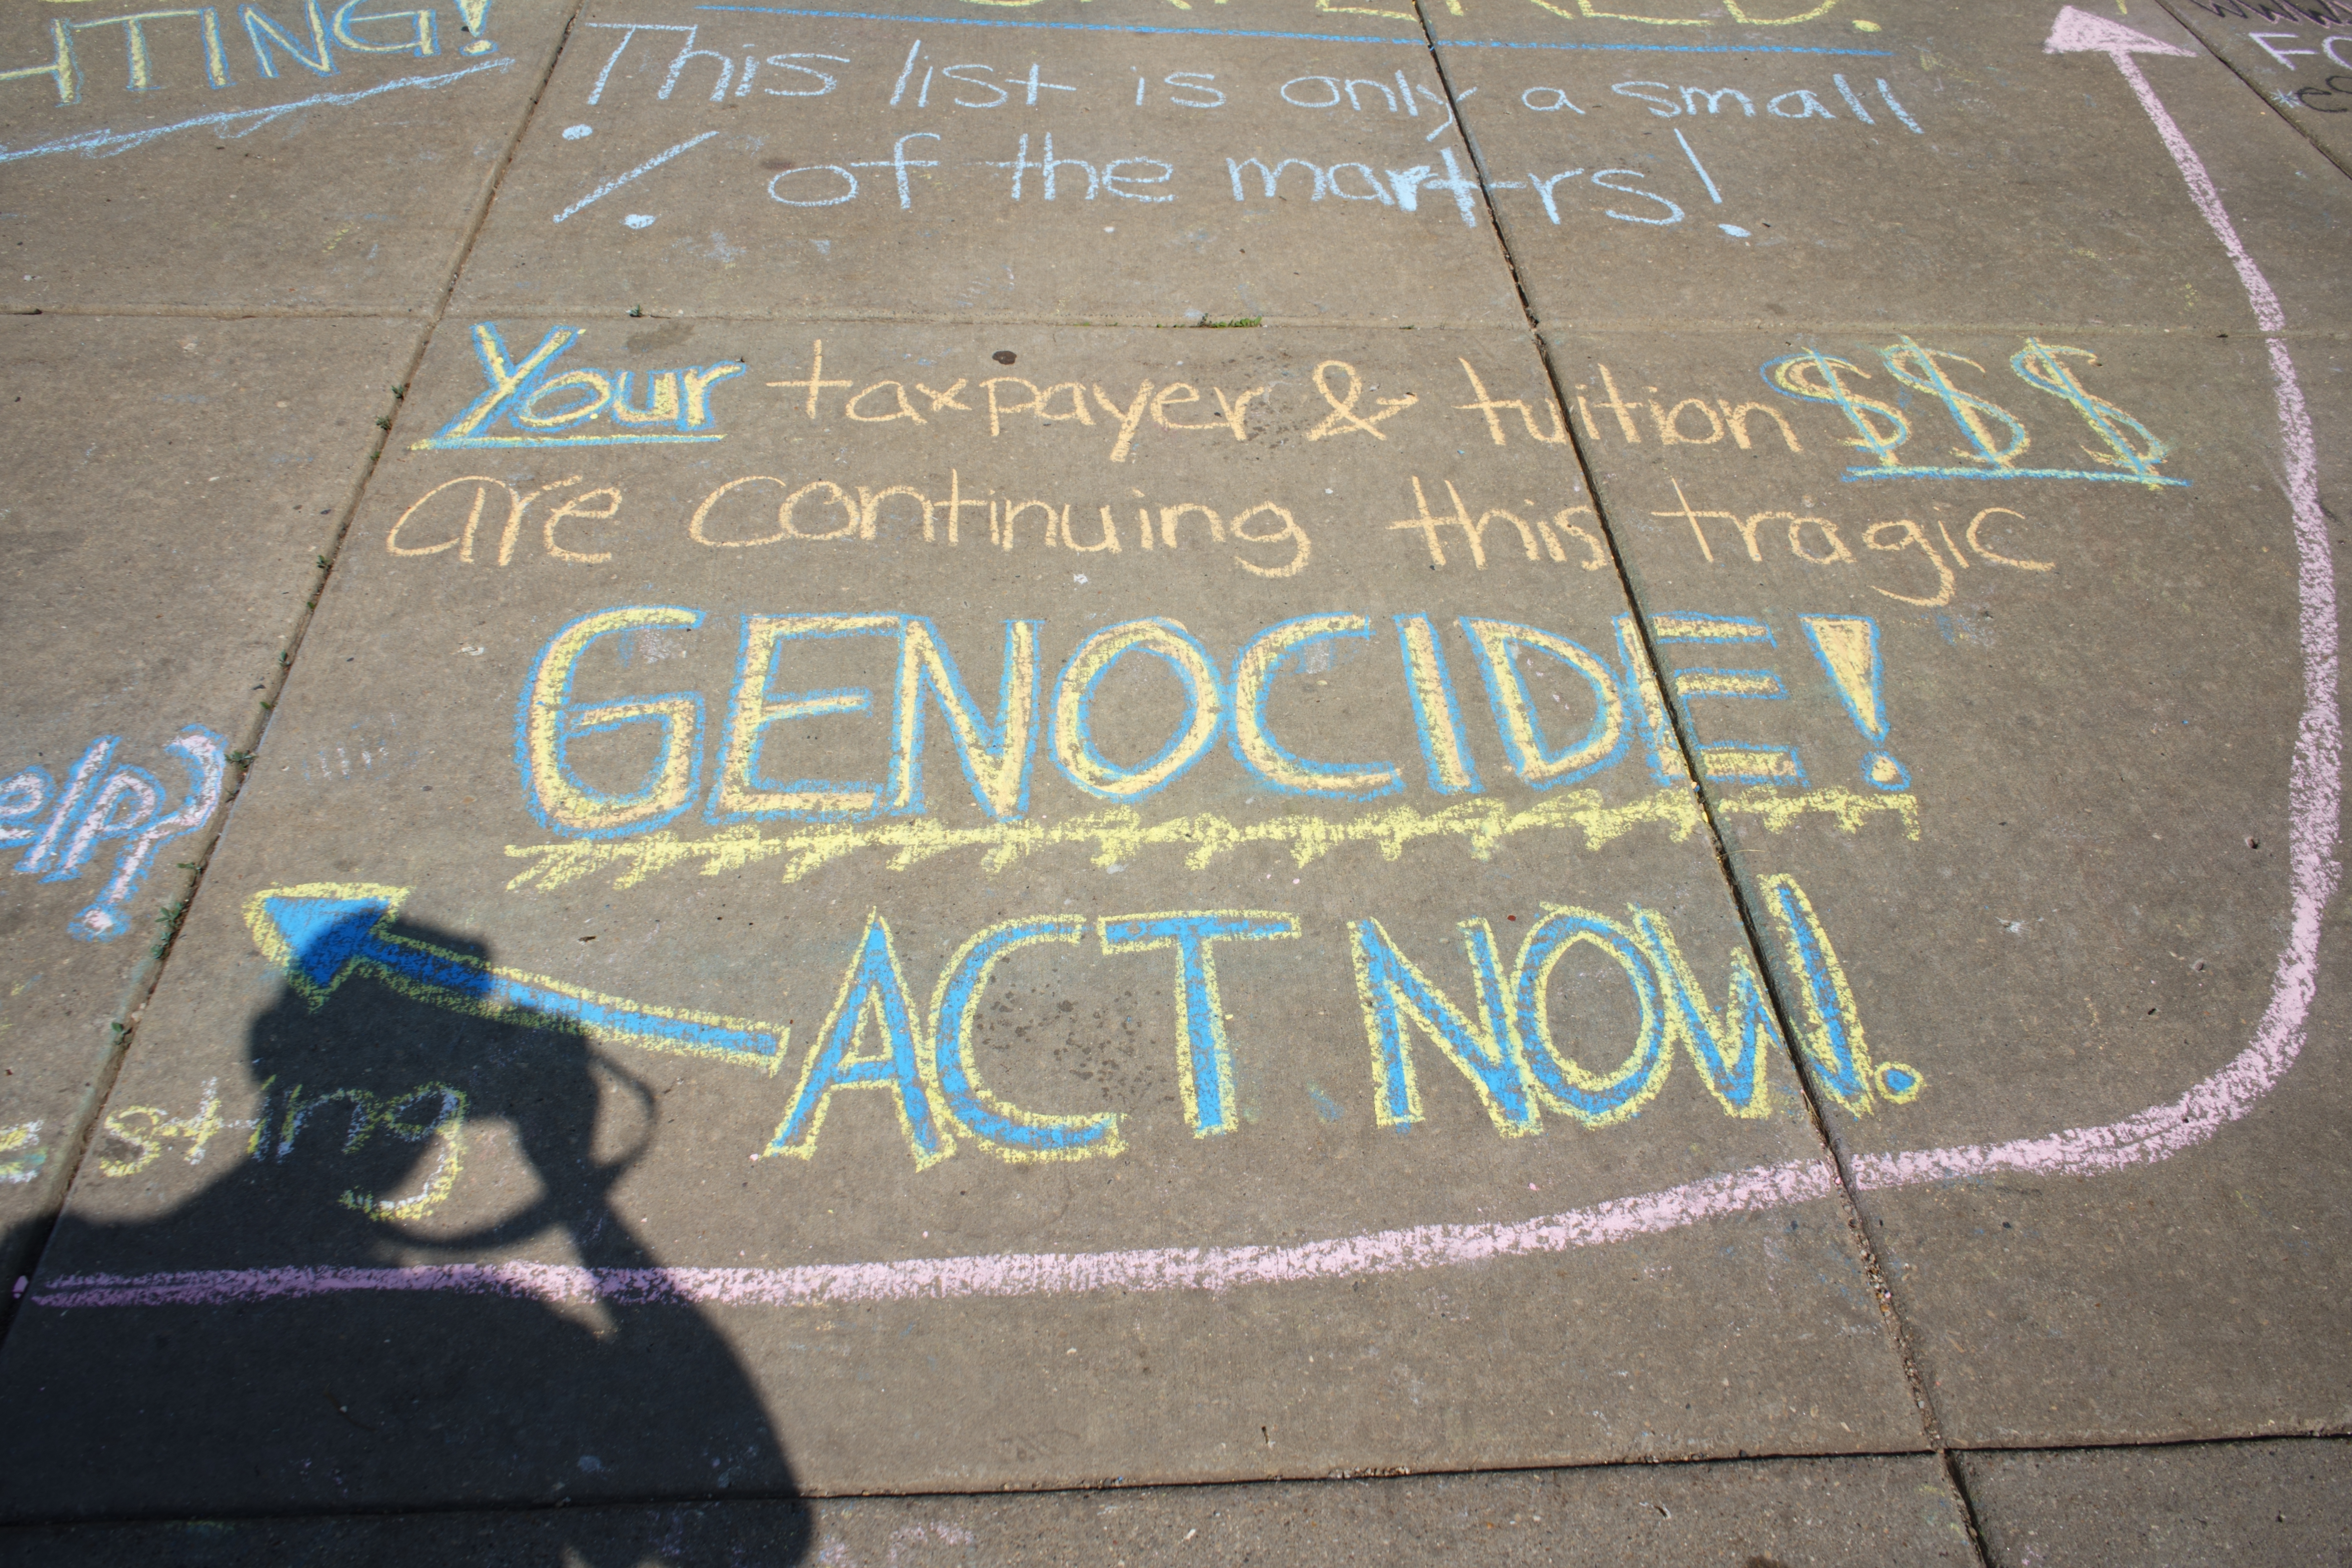 This list is only a small
% of the martrs!
Your taxpayer & tuition $$$
are continuing this tragic
GENOCIDE!
ACT NOW.